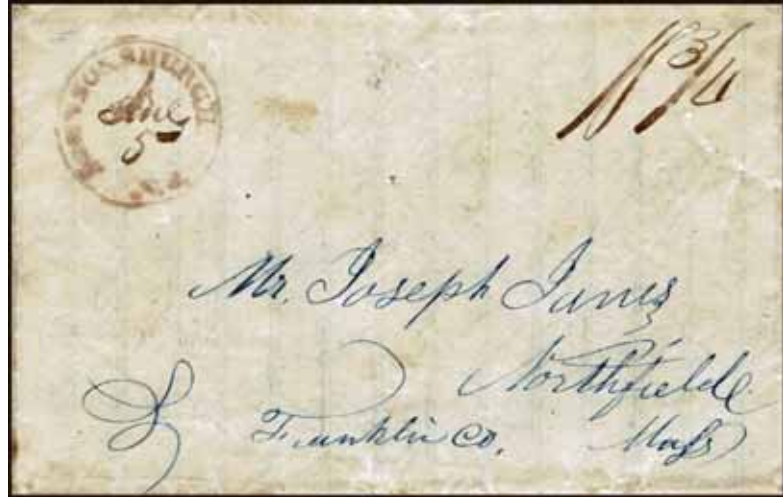 June
5
18 3/4
Mr. Joseph Janes
Northfield
Franklin Co. Mass